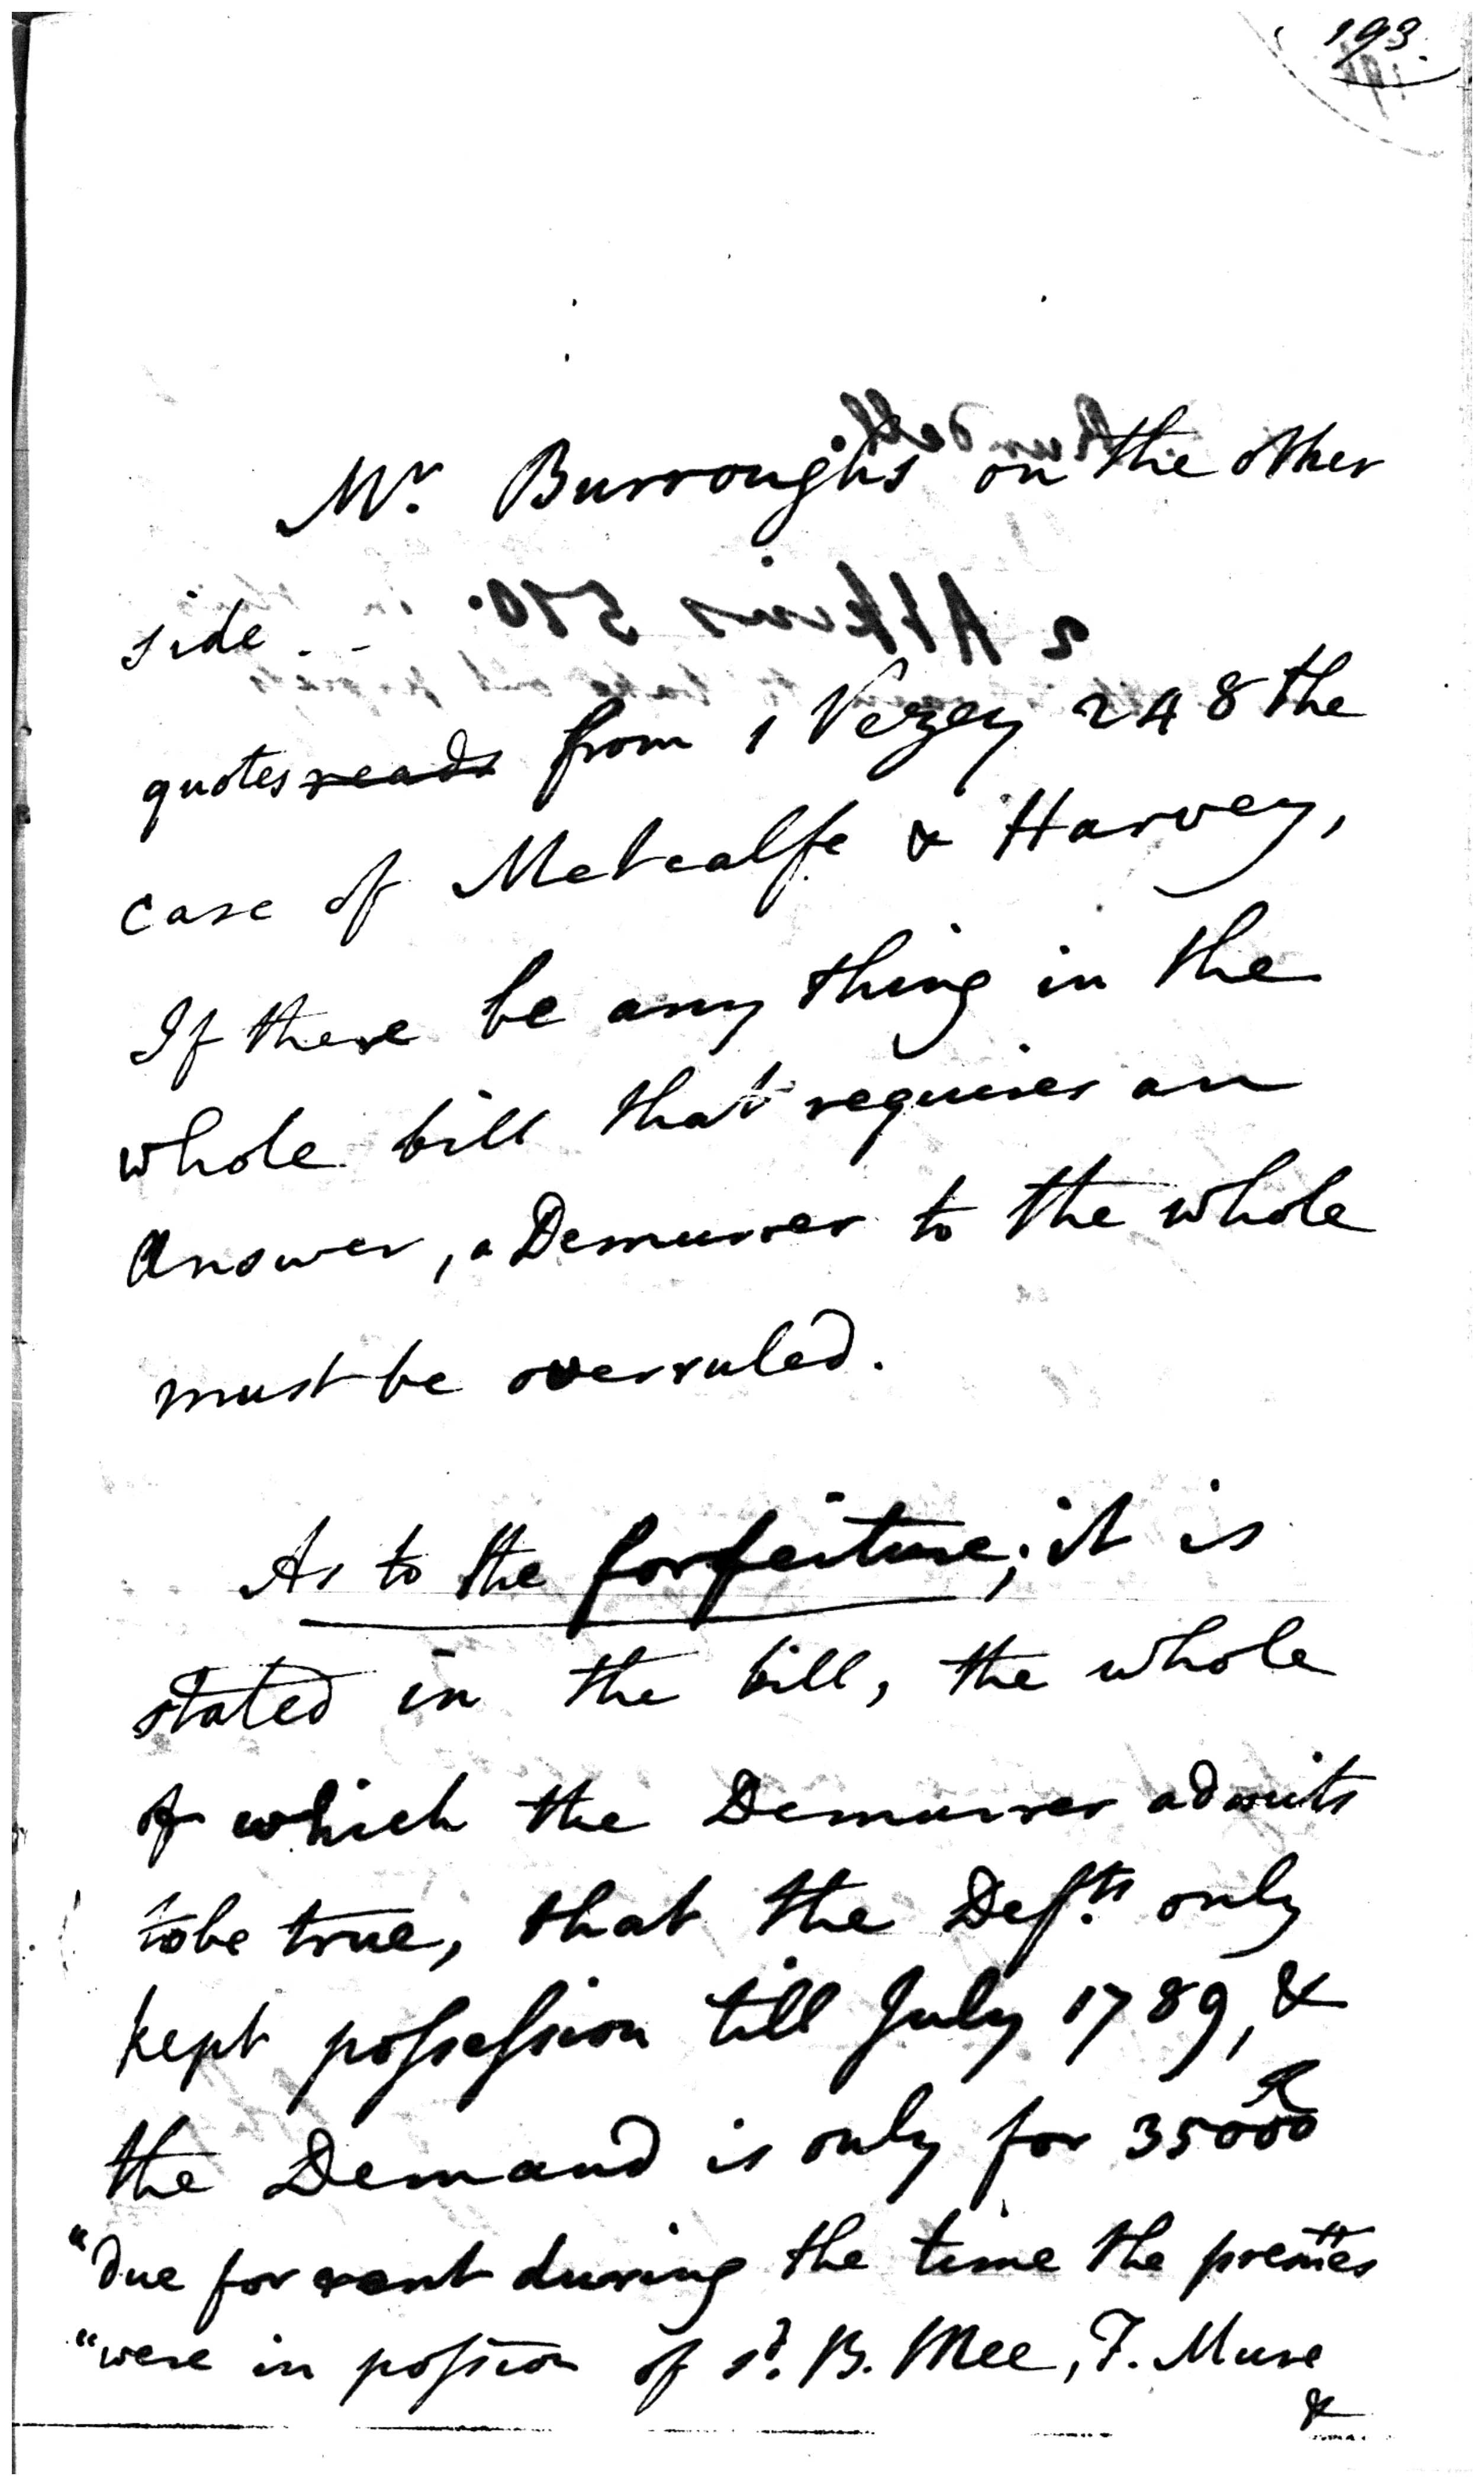 193.
Mr. Burroughs on the other
side - -
quotes reads from 1 Vezey 248 the
case of Metcalfe & Harvey,
If there be any thing in the
whole bill that requires an
Answer, a Demurrer to the whole
must be overruled.
As to the forfeiture; it is
stated in the bill, the whole
of which the Demurrer admits
to be true, that the Defts. only
kept possession till July 1789, &
the Demand is only for 35000 R
"due for rent during the time the premes
"were in possion of sd. B. Mee, F. Mure
&